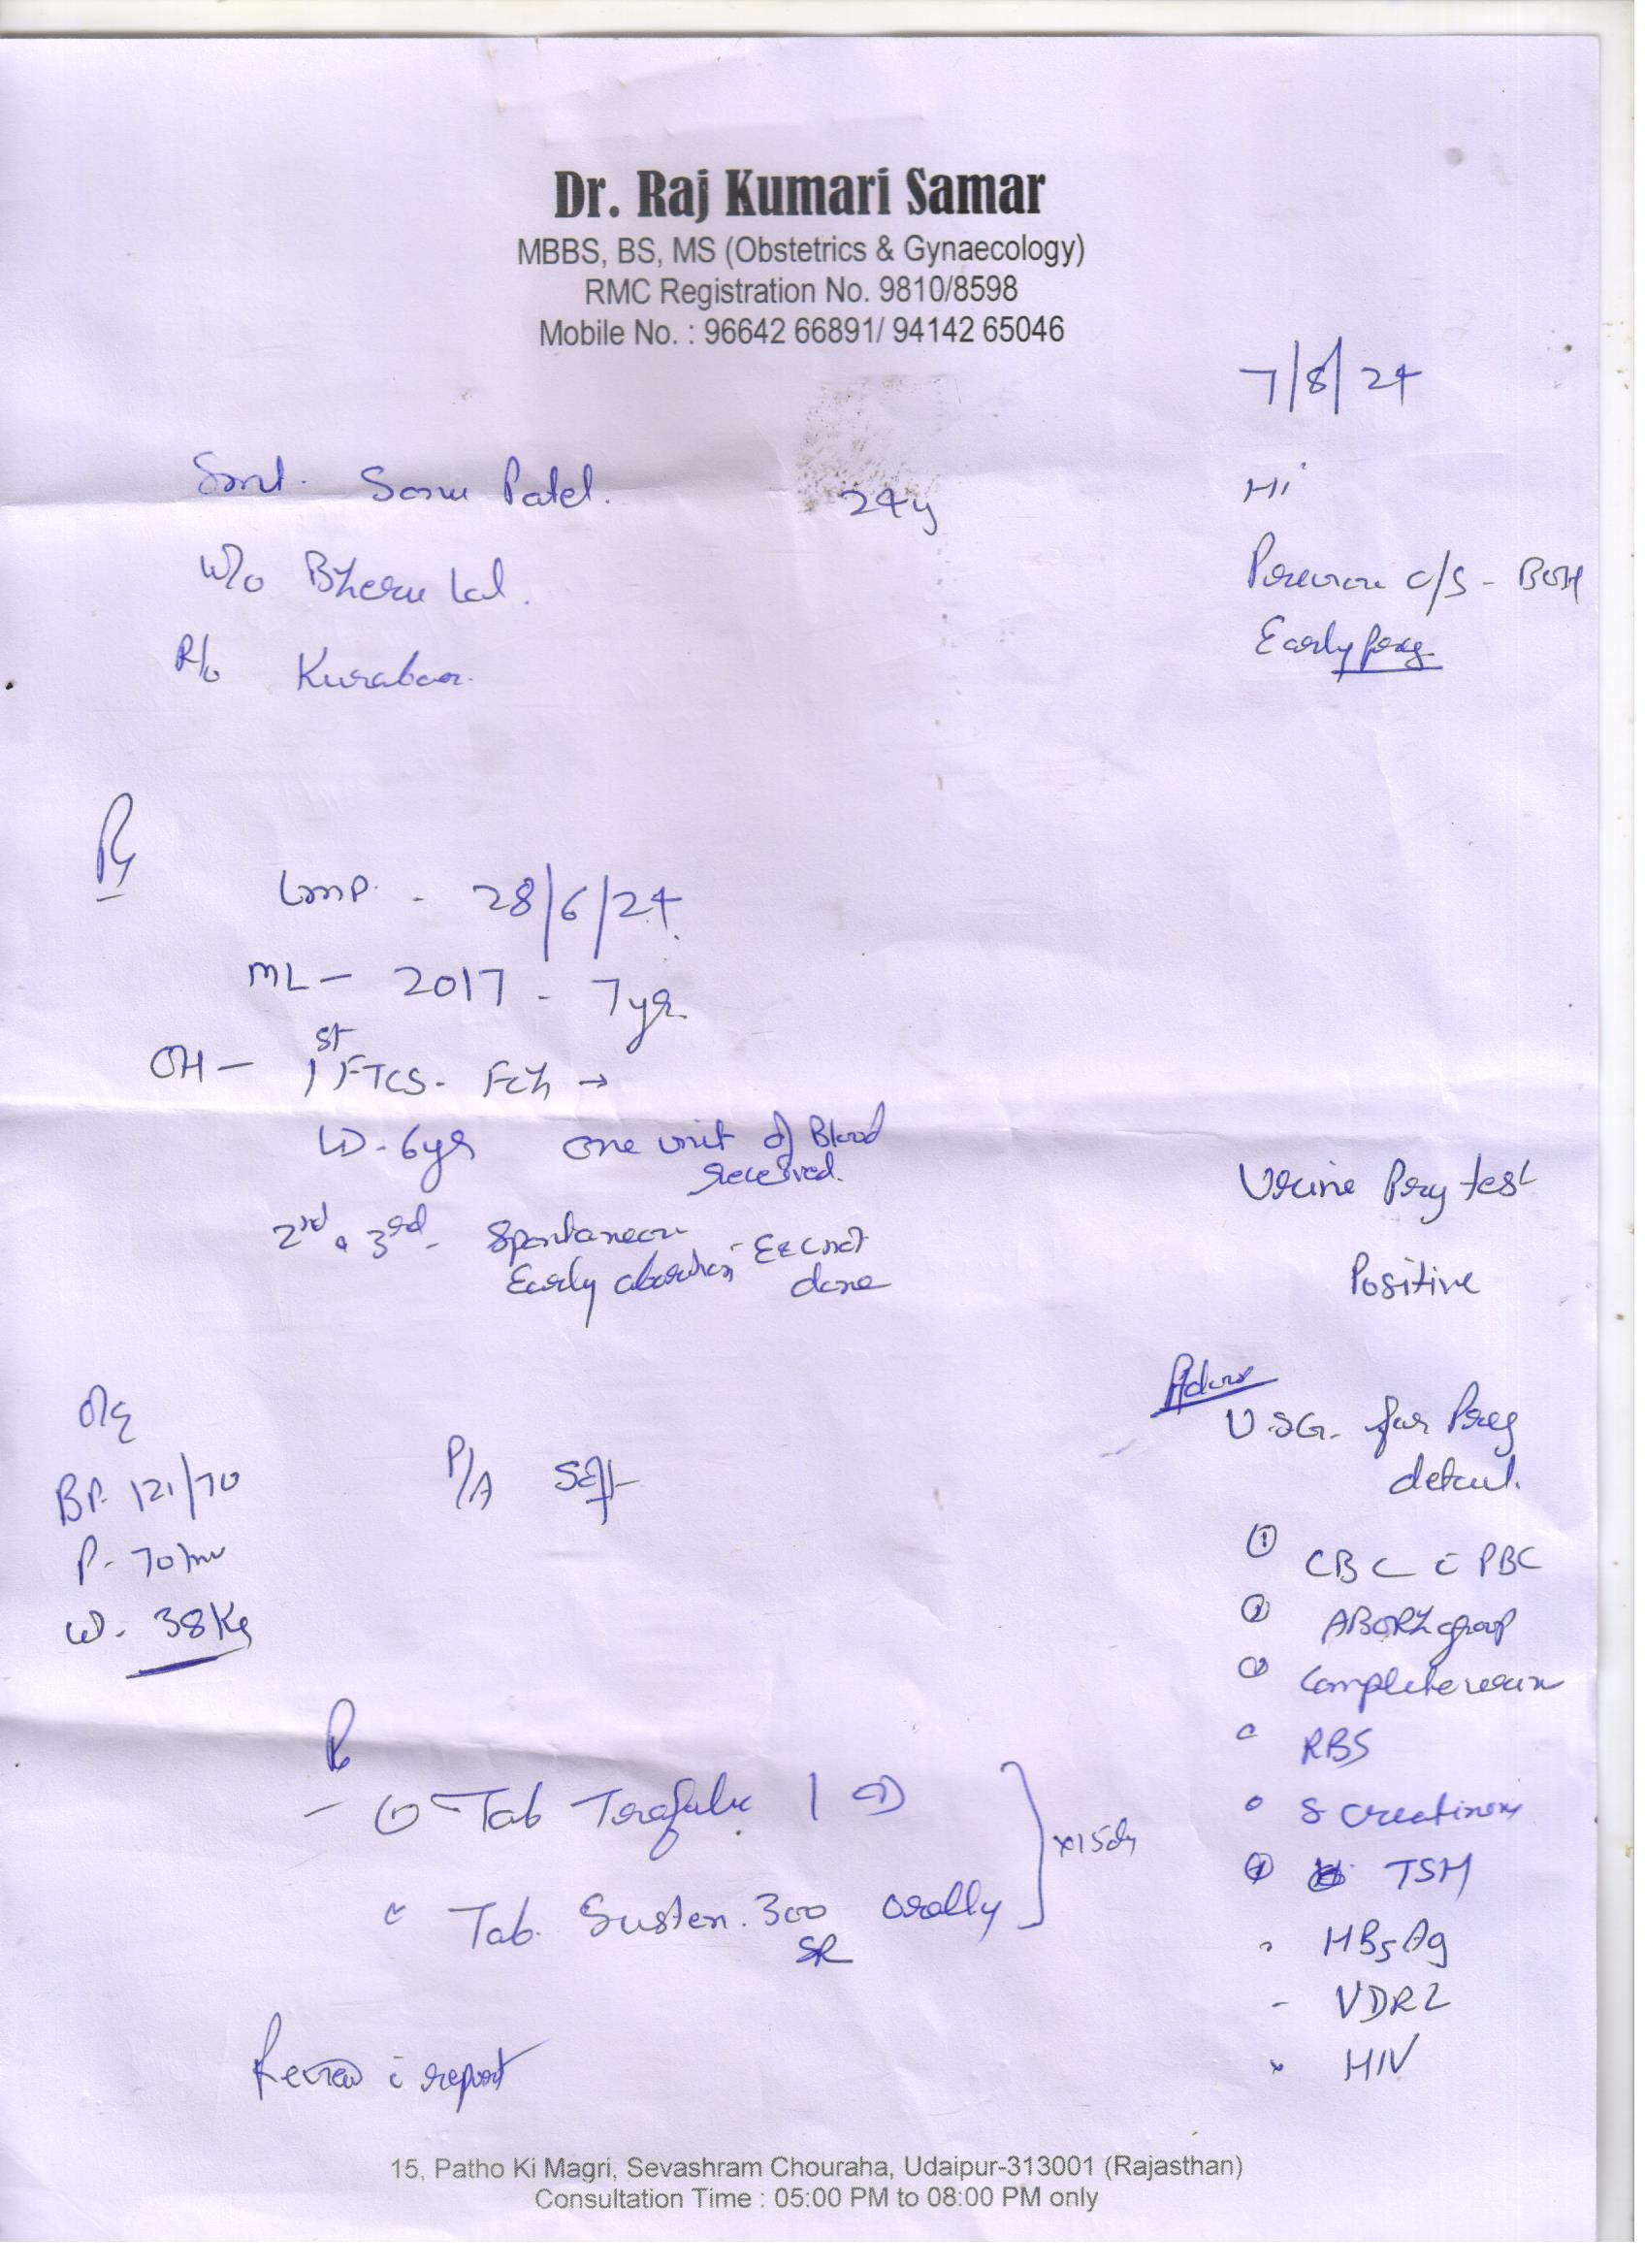 Dr. Raj Kumari Samar
MBBS, BS, MS (Obstetrics & Gynaecology)
RMC Registration No. 9810/8598
Mobile No. : 96642 66891/ 94142 65046
7/8/24
Smt. Sonu Patel. 24y
W/o Bheru Lal.
R/o Kurabar.
H/o
Previous C/S - BOH
Early Preg.
Rx
LMP. - 28/6/24.
ML - 2017 - 7yr
OH - 1st FTCS - Fch →
LD - 6yr one unit of Blood
received.
2nd & 3rd - Spontaneous
Early abortion - E&C not
done
Urine Preg test
Positive
O/E
BP. 121/70
P. 70/m
W. 38Kg
P/A Soft
Adv
USG. for Preg
detail.
① CBC c PBC
ABORh group
Complete urine
RBS
S Creatinine
TSH
HBsAg
VDRL
HIV
R
Tab 1 OD
Tab. Susten. 300 orally
SR
x15dy
Review c report
15, Patho Ki Magri, Sevashram Chouraha, Udaipur-313001 (Rajasthan)
Consultation Time : 05:00 PM to 08:00 PM only